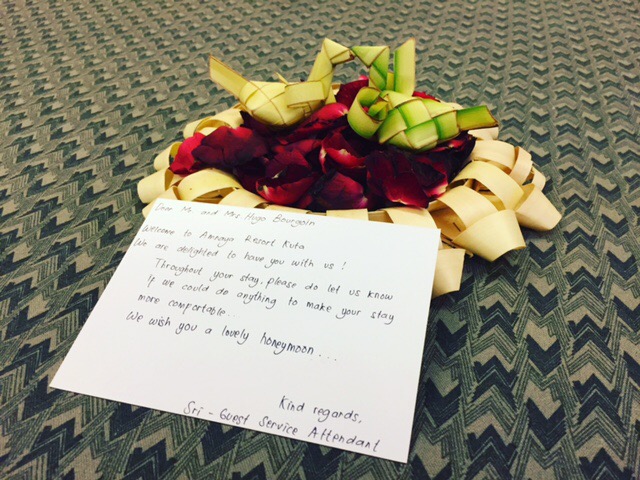 Dear Mr. and Mrs. Hugo Bourgoin
Welcome to Amnaya Resort Kuta
We are delighted to have you with us !
Throughout your stay, please do let us know
If we could do anything to make your stay
more comfortable..
We wish you a lovely honeymoon...
Kind regards,
Sri - Guest Service Attendant